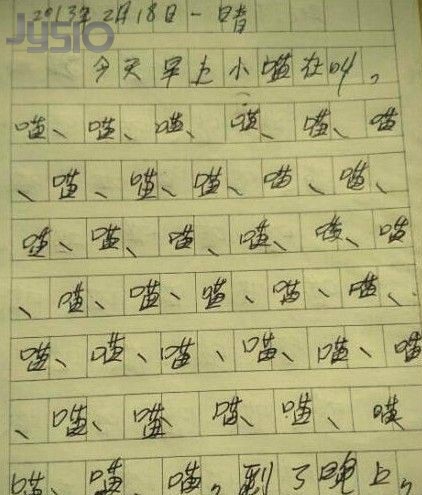 2013年2月18日 一 晴
今天早上小喵在叫。
喵、喵、喵、喵、喵、喵
、喵、喵、喵、喵、喵、
喵、喵、喵、喵、喵、喵
、喵、喵、喵、喵、喵、
喵、喵、喵、喵、喵、喵
、喵、喵 喵、喵、喵
喵、喵、喵。到了晚上,